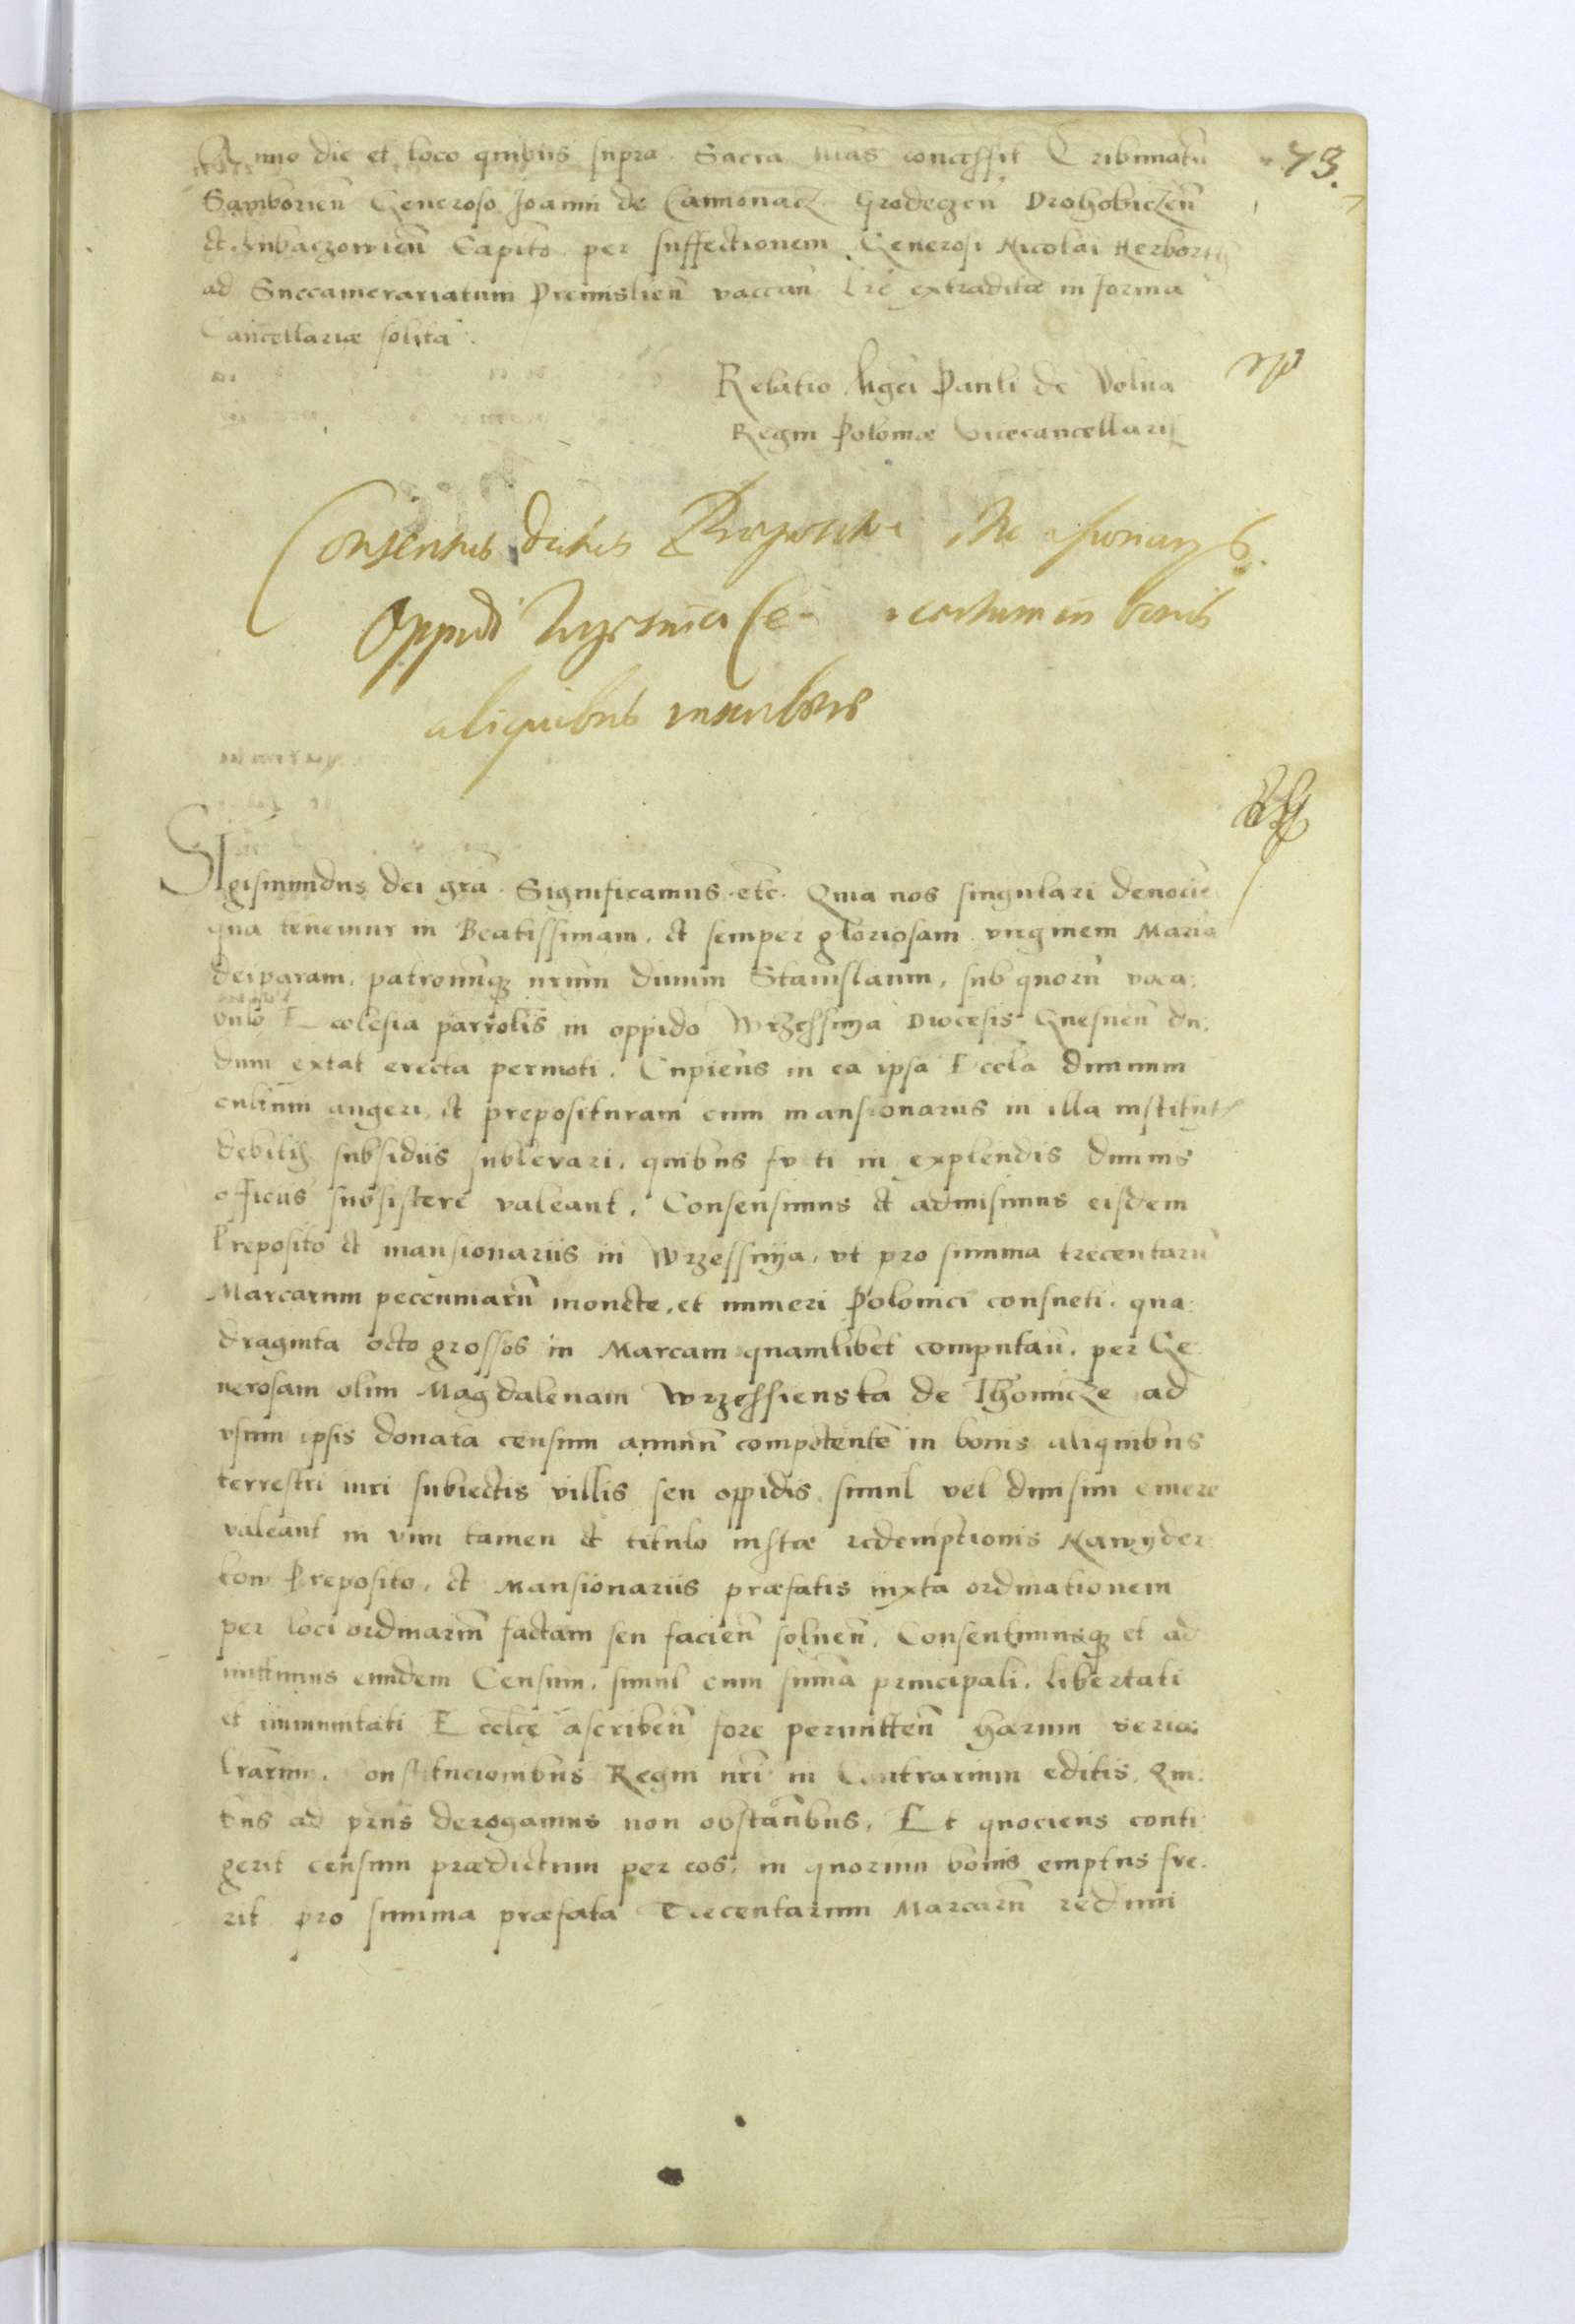 73.
Anno die et loco quibus supra. Sacra Mtas concessit Tribunatũ
Samborieñ Generoso Joanni de Camionacz Grodeczeñ Drohobiczeñ
et Lubaczowieñ Capito per suffectionem Generosi Nicolai Herborth
ad Succamerariatum Premislieñ vaccan̄ Lrẽ extraditæ in forma
Cancellariæ solita.
Relatio Mgci Pauli de Volua
Regni Poloniæ Vicecancellarij
Consensus datus Præposito Mansionarijs
Oppidi Wrzesnia Ce- in bonis
aliquibus
Sigismundus dei grã. Significamus etc. Quia nos singulari deuocie
qua tenemur in Beatissimam, et semper gloriosam virginem Mariã
deiparam, patronũq nrum diuum Stanislaum, sub quorũ voca:
bulo Ecclesia parrolis in oppido Wrzessnija Diocesis Gnesneñ du:
dum extat erecta permoti. Cupieñs in ea ipsa Eccla diuinum
cultum augeri, et preposituram cum mansionariis in illa institut
debitis subsidiis subleuari, quibus freti in explendis diuinis
officiis subsistere valeant. Consensimus et admisimus eisdem
Preposito et mansionariis in Wrzessnija, vt pro summa trecentarũ
Marcarum peccuniarũ monete, et numeri Polonici consueti, qua:
draginta octo grossos in Marcam quamlibet computañ, per Ge
nerosam olim Magdalenam Wrzessienska de Thomicze ad
vsum ipsis donata censum annuũ competentẽ in bonis aliquibus
terrestri iuri subiectis villis seu oppidis, simul vel diuisim emere
valeant in vim tamen et titulo iustæ redemptionis Nawyder
kow Preposito, et Mansionariis præfatis iuxta ordinationem
per loci ordinariũ factam seu facieñ solueñ. Consentimusq et ad
mittimus eundem Censum, simul cum sum̃a principali, libertati
et immunitati Ecclæ ascribeñ fore permitteñ harum seriæ
lrarum. Constitucionibus Regni nri in Contrarium editis Qui:
bus ad prñs derogamus non obstãñbus. Et quociens conti
gerit censum prædictum per eos, in quorum bonis emptus fue:
rit pro summa præfata Trecentarum Marcarũ redimi